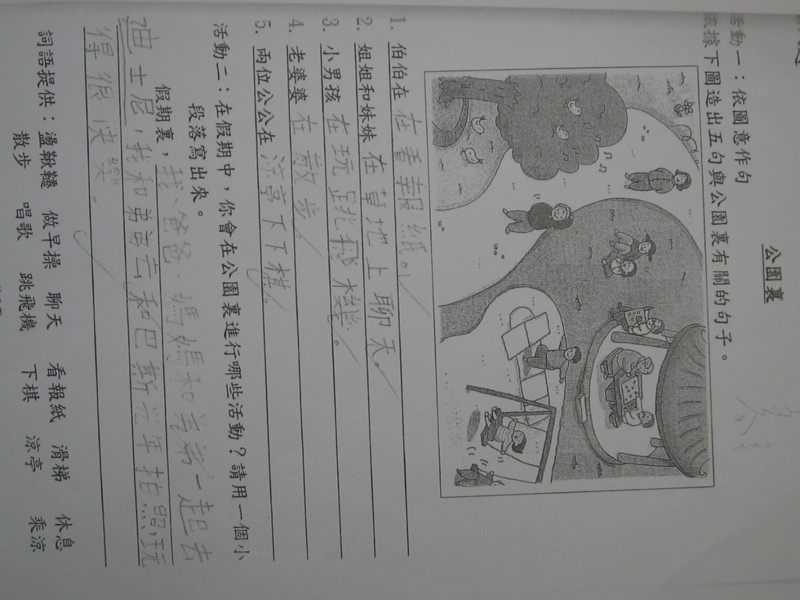 公園裏
活動一：依圖意作句
依據下圖造出五句與公園裏有關的句子。
1. 伯伯在 在看報紙。
2. 姐姐和妹妹 在草地上聊天。
3. 小男孩 在玩跳飛機。
4. 老婆婆 在散步。
5. 兩位公公在 涼亭下下棋。
活動二：在假期中，你會在公園裏進行哪些活動？請用一個小
段落寫出來。
假期裏，我、爸爸、媽媽和弟弟一起去
迪士尼，我和弟弟去和巴斯光年拍照，玩
得很快樂。
詞語提供：盪鞦韆 做早操 聊天 看報紙 滑梯 休息
散步 唱歌 跳飛機 下棋 涼亭 乘涼